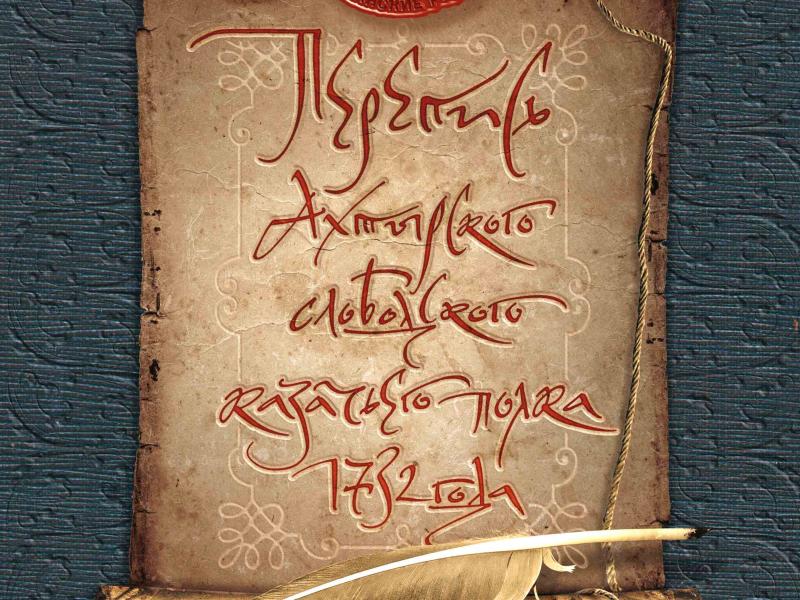 Перепись
Ахтырского
слободского
казачьего полка
1732 года